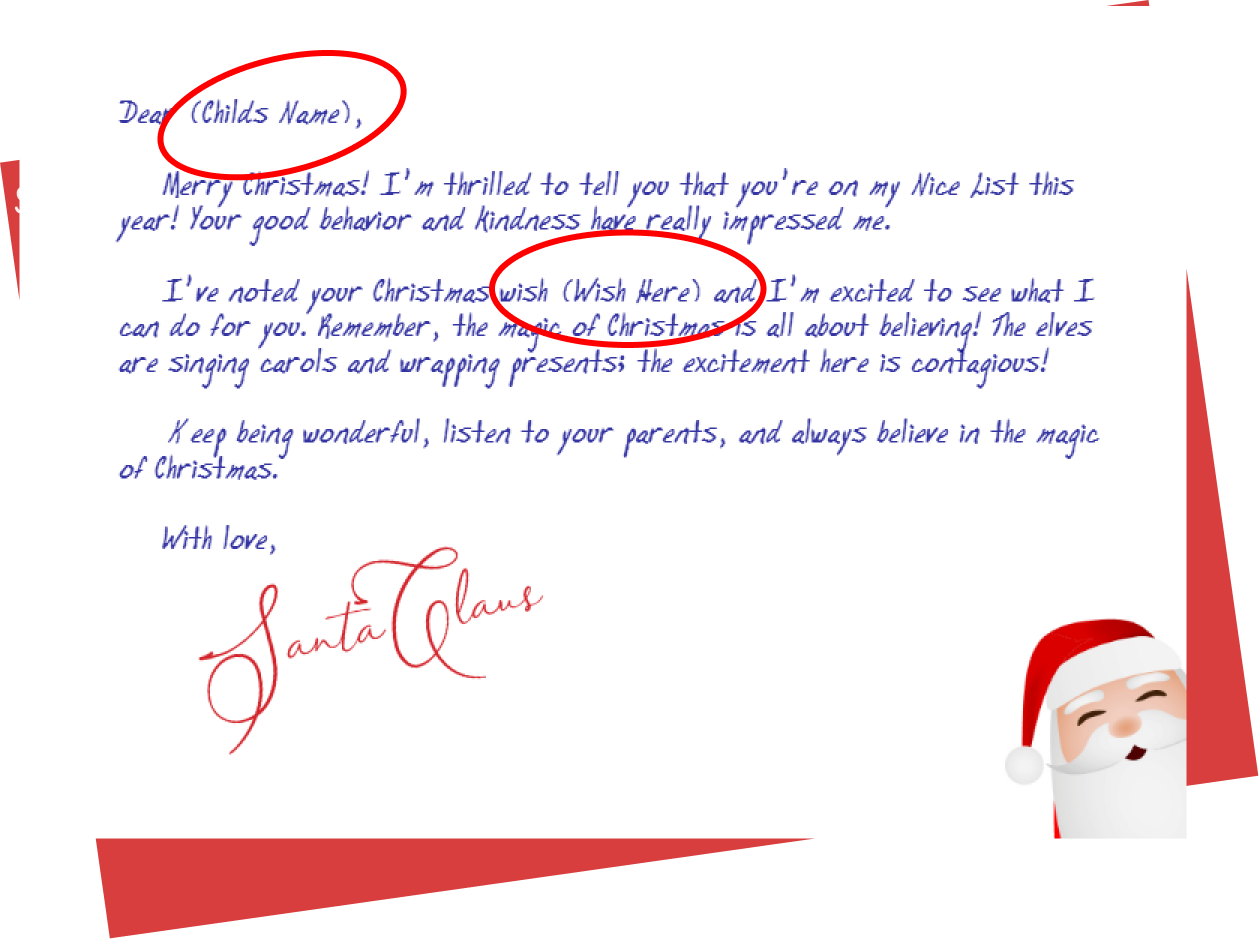 Dear (Childs Name),
Merry Christmas! I'm thrilled to tell you that you're on my Nice List this
year! Your good behavior and kindness have really impressed me.
I've noted your Christmas wish (Wish Here) and I'm excited to see what I
can do for you. Remember, the magic of Christmas is all about believing! The elves
are singing carols and wrapping presents; the excitement here is contagious!
Keep being wonderful, listen to your parents, and always believe in the magic
of Christmas.
With love,
Santa Claus